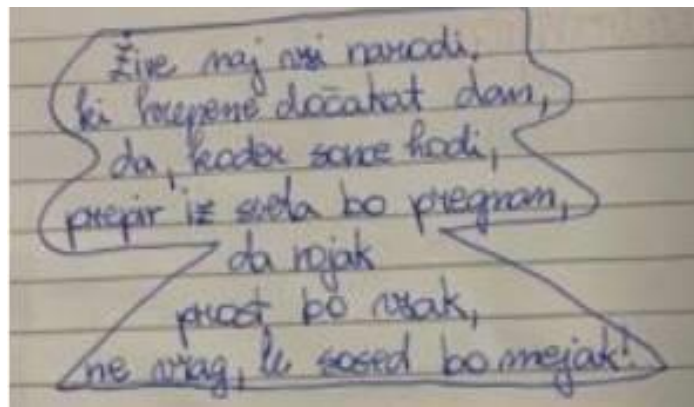 Žive naj vsi narodi,
ki hrepene dočakat dan,
da, koder sonce hodi,
prepir iz sveta bo pregnan,
da rojak
prost bo vsak,
ne vrag, le sosed bo mejak!